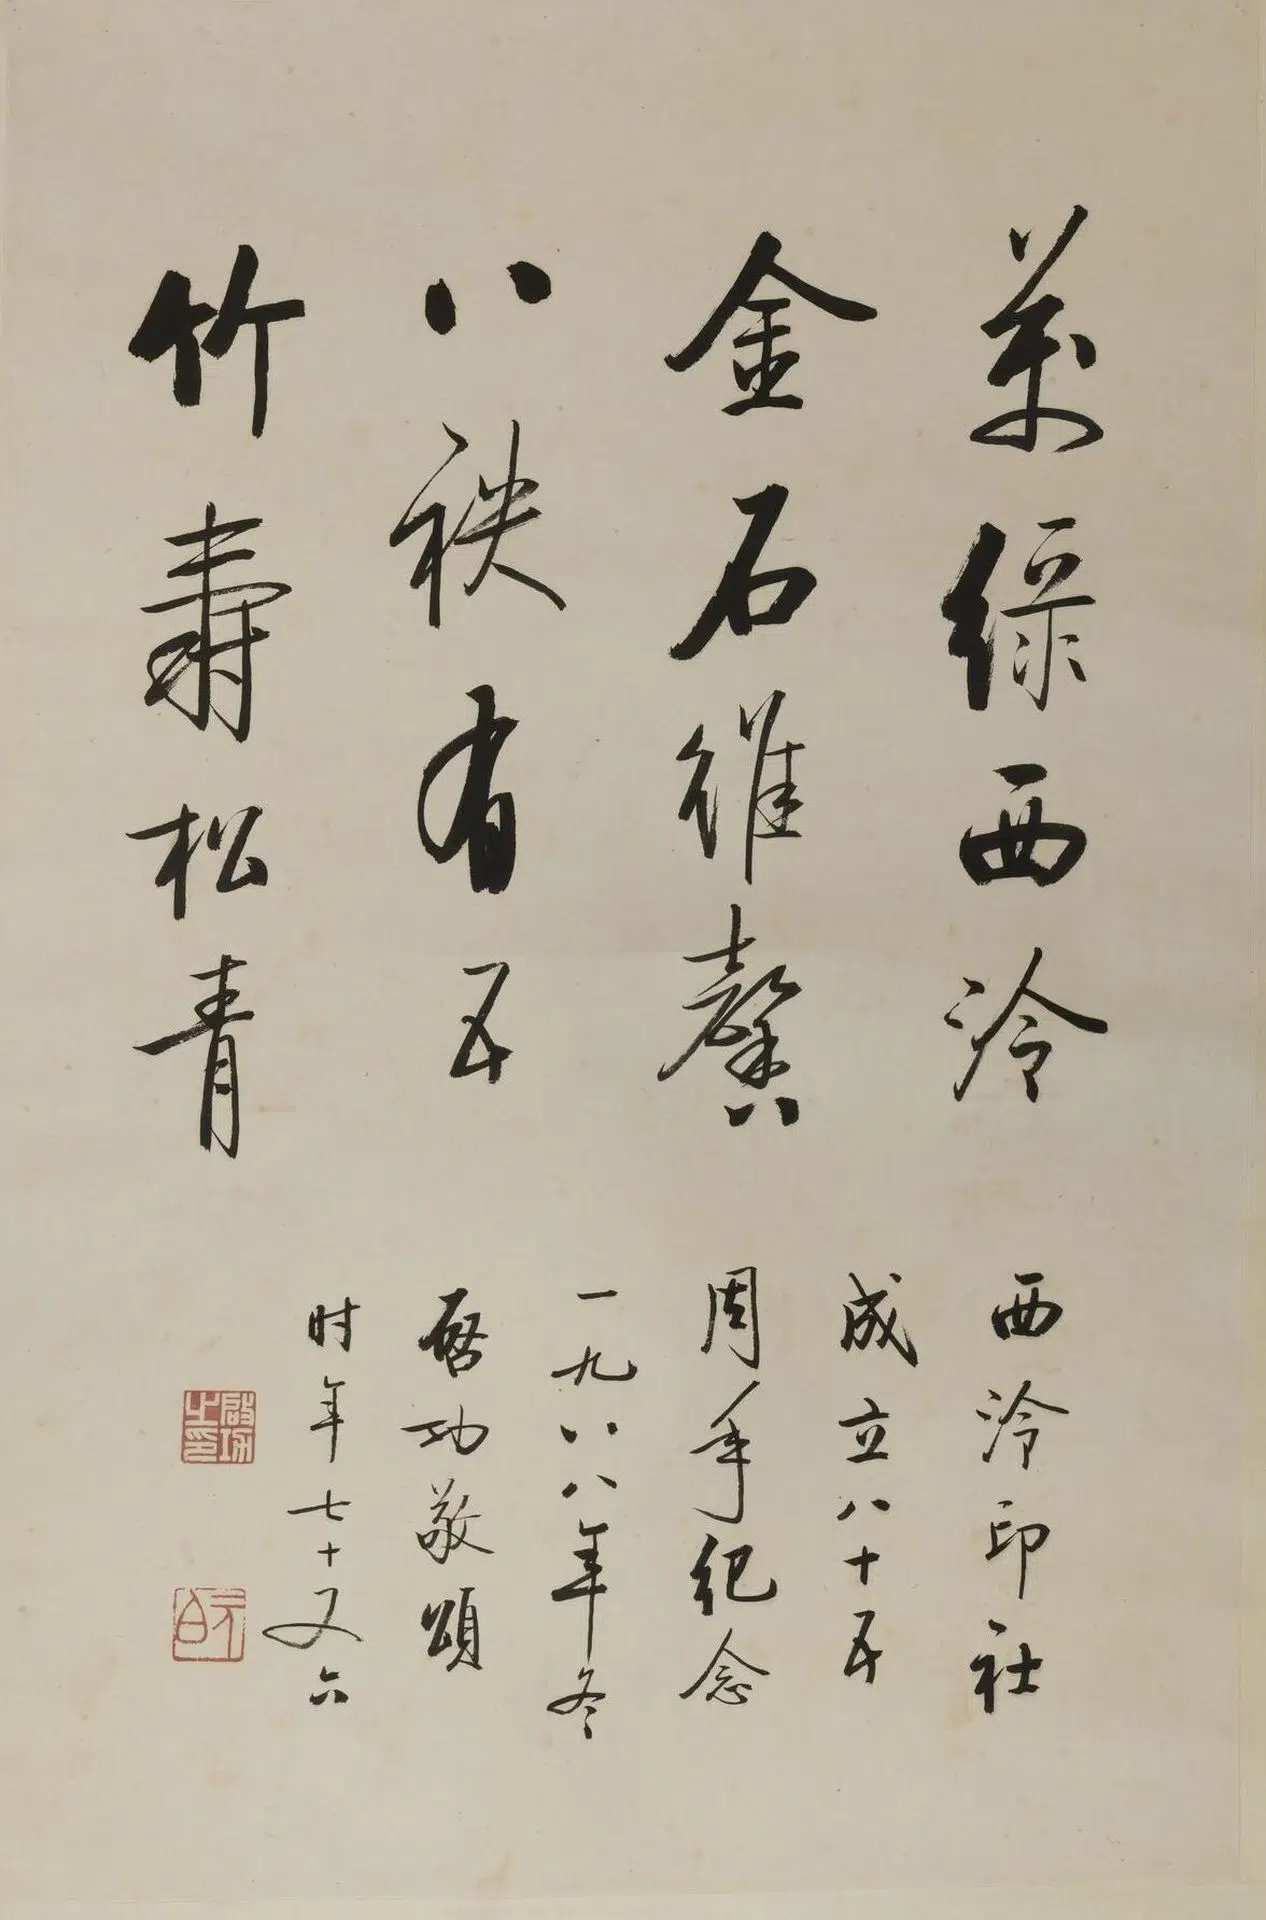 萬綠西泠
金石維馨
八秩有五
竹壽松青
西泠印社
成立八十五
周年紀念
一九八八年冬
啓功敬頌
时年七十又六
啟功之印
元白